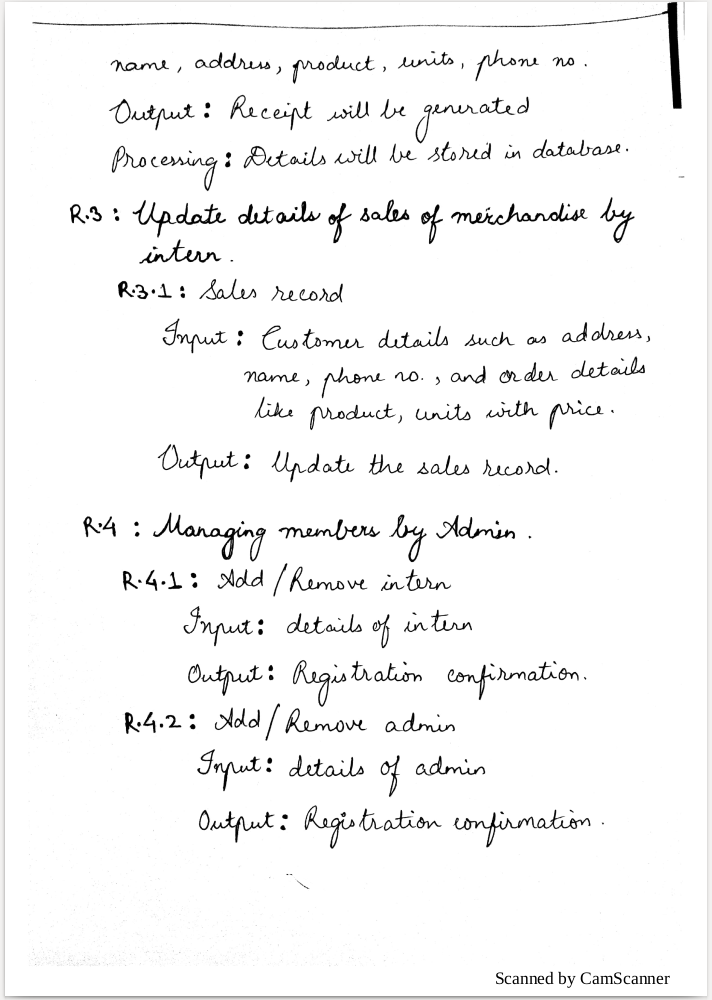 name, address, product, units, phone no.
Output: Receipt will be generated
Processing: Details will be stored in database.
R.3: Update details of sales of merchandise by
intern.
R.3.1: Sales record
Input: Customer details such as address,
name, phone no., and order details
like product, units with price.
Output: Update the sales record.
R.4: Managing members by Admin.
R.4.1: Add/Remove intern
Input: details of intern
Output: Registration confirmation.
R.4.2: Add/Remove admin
Input: details of admin
Output: Registration confirmation.
Scanned by CamScanner